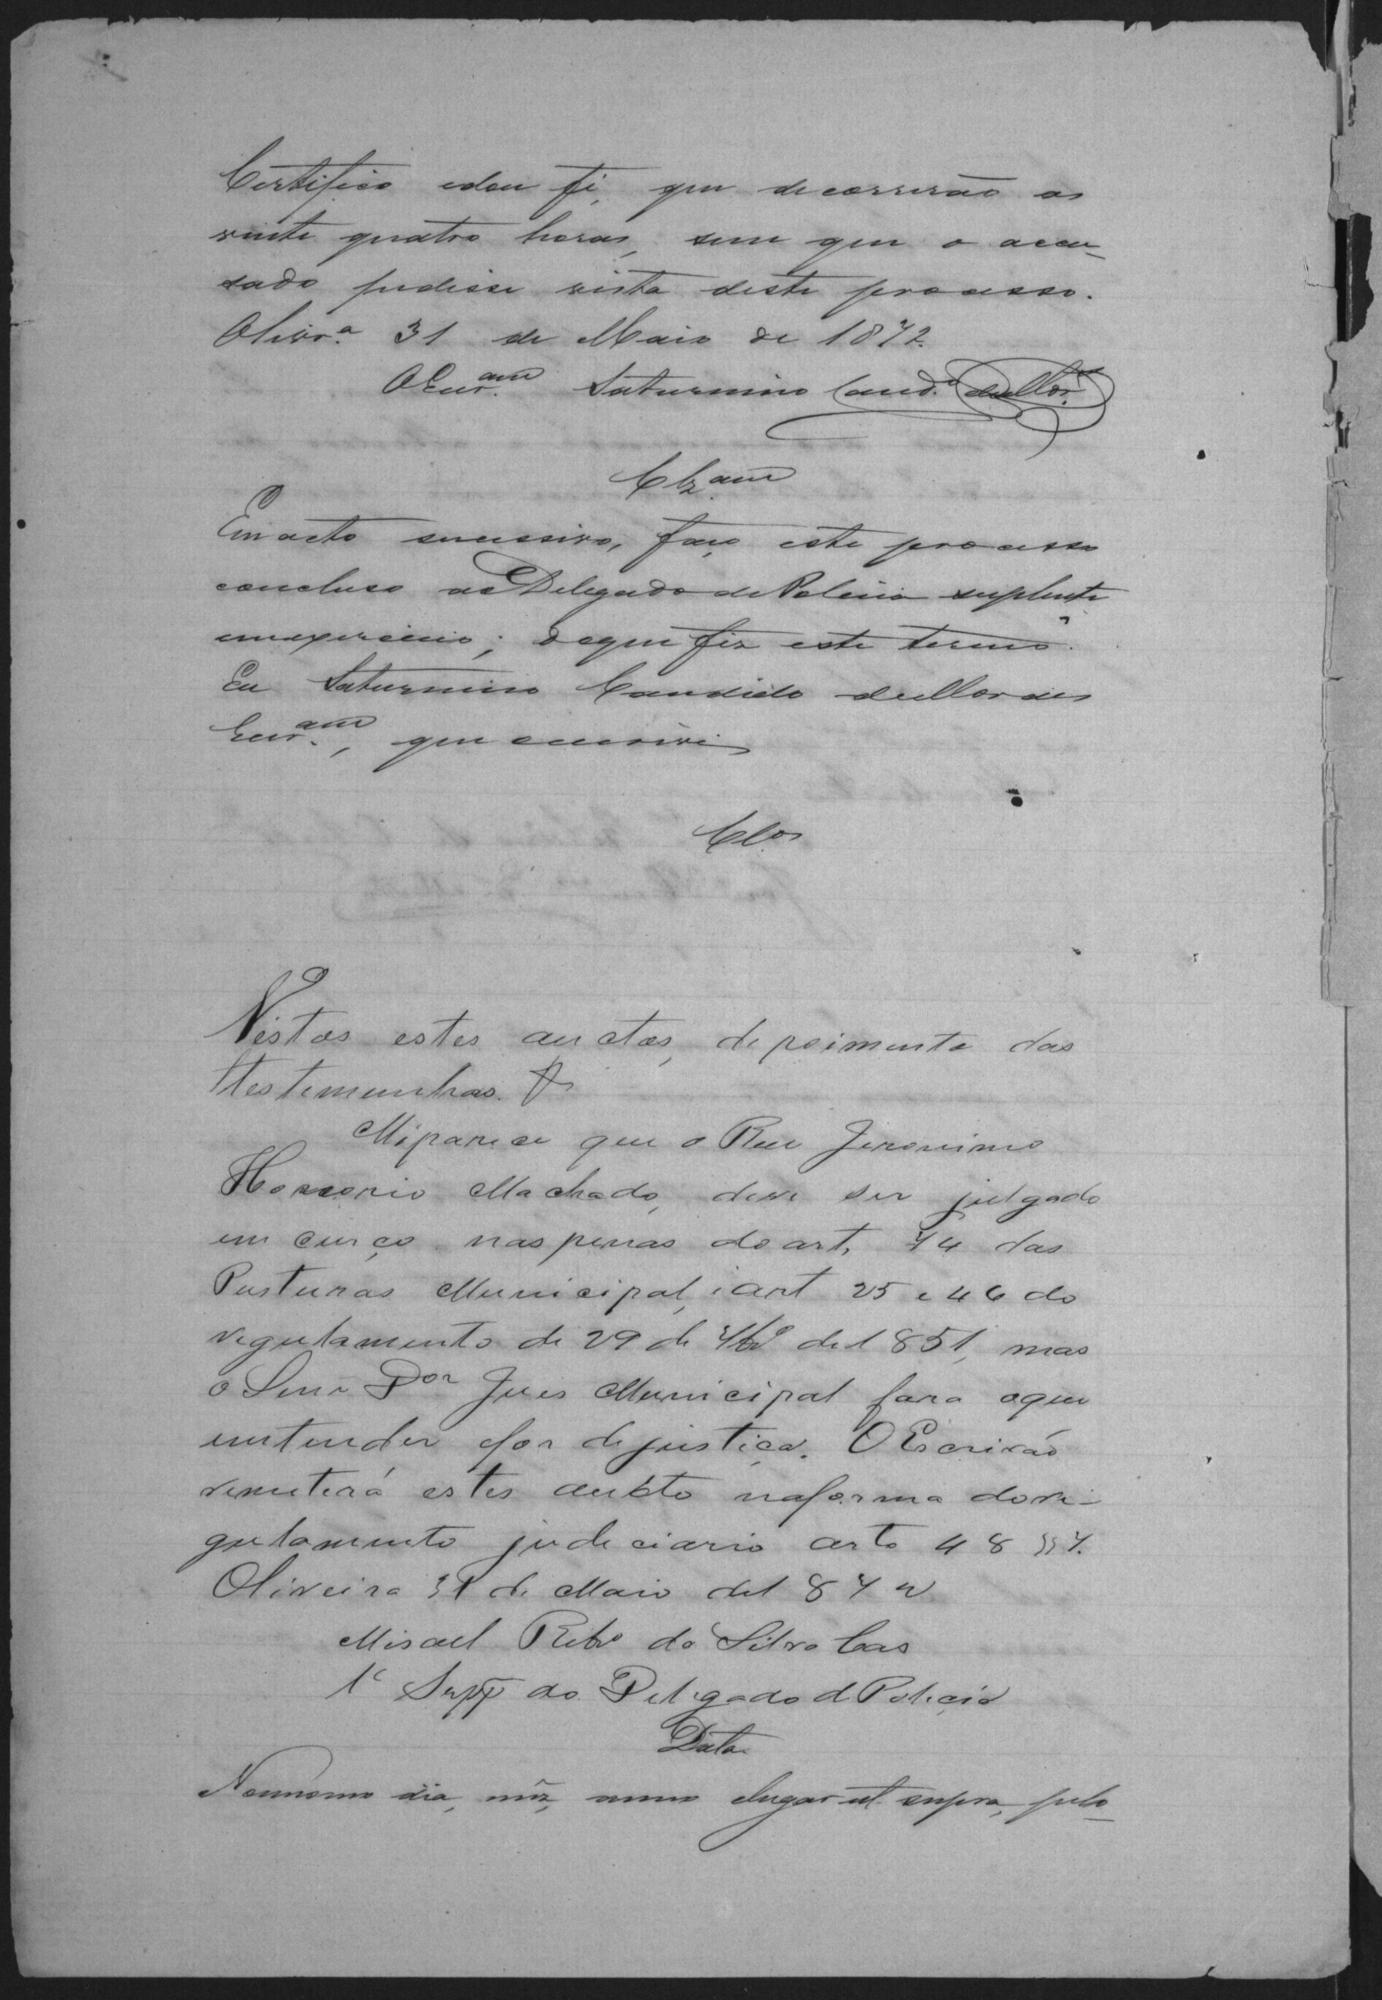 Certifico e dou fé, que decorrerão as
vinte quatro horas, sem que o accu-
sado pedisse vista deste processo.
Olivrª 31 de Maio de 1872.
O Escr.am Saturnino Cand.º de Mor.es
Clz.am
Em acto successivo, faço este processo
concluso ao Delegado de Policia supplente
em exercicio; do que fiz este termo.
Eu Saturnino Candido de Moraes
Escr.am, que escrivi
Clos
Vistos estes auctos, depoimento das
testemunhas &
Mi parece que o Reu Jeronimo
Honorio Machado, deve ser julgado
em curço nas penas do art. 74 das
Posturas Municipal, i art 25 e 46 do
regulamento de 29 de 9bro de 1851, mas
o Senr Dor Jues Municipal fara o que
emtender for de justiça. O Escrivão
remeterá estes aucto na forma do re-
gulamento judeciario arto 48 §§ 7.
Oliveira 31 de Maio de 1872
Misael Ribro da Silva Cas
1º Supp do Delegado de Policia
Data
No mesmo dia, mez, anno e lugar ut supra, pelo